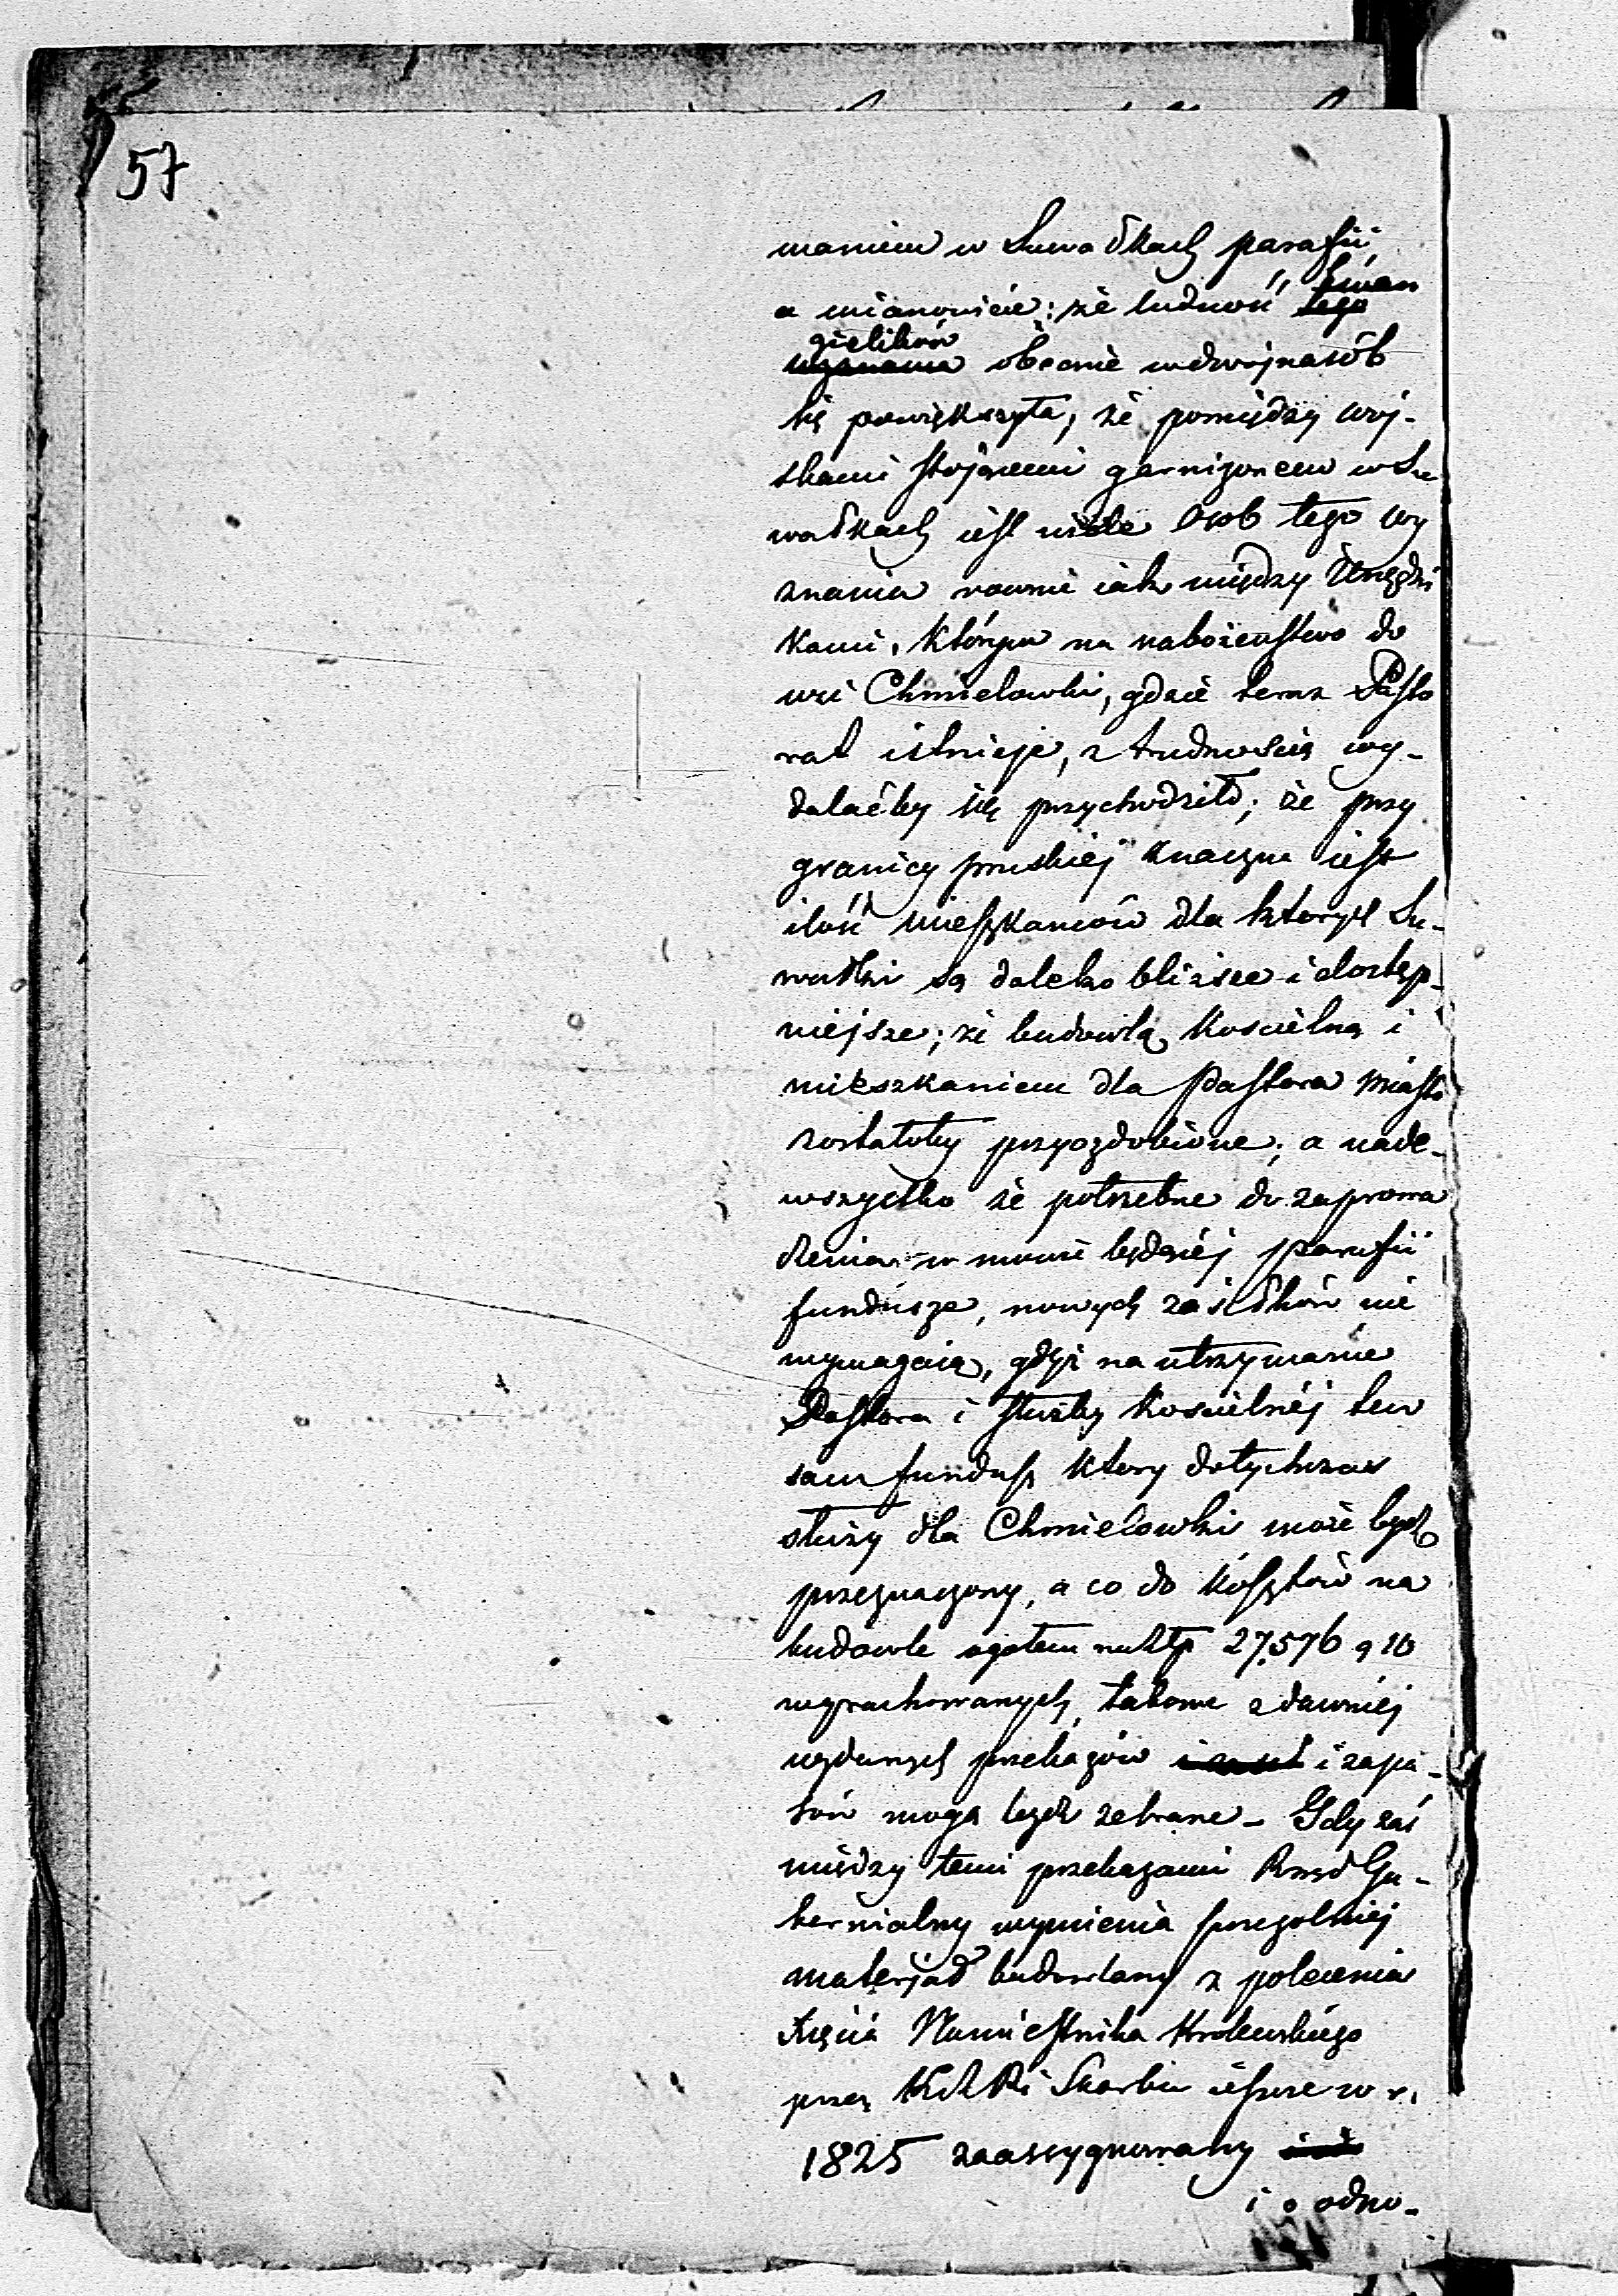 57
waniem w Suwałkach parafii
a mianowicie: że ludność ~~tego~~ Ewan
gielików ~~wyznania~~ obecnie wdwójnasób
się powiększyła, że pomiędzy woj-
skami stojącemi garnizonem w Su
wałkach iest wiele Osob tego wy
znania rownie iak między Urzędni
kami, którym na nabożeństwo do
wsi Chmielowki, gdzie teraz Pasto
rat istnieje, z trudnością wy-
dalaćby się przychodziło; że przy
granicy pruskiej znaczna iest
ilość mieszkancow dla ktorych Su-
wałki są daleko bliższe i dostęp-
niejsze; że budowlą Kościelną i
mieszkaniem dla Pastora Miasto
zostałoby przyozdobione; a nade-
wszystko że potrzebne do zaprowa
dzenia w mowie będącéj parafii
fundusze, nowych zasiłków nie
wymagaią, gdyż na utrzymanie
Pastora i służby Kościelnéj ten
sam fundusz ktory dotychczas
służy dla Chmielowki może bydź
przeznaczony, a co do kosztów na
budowle ogołem na Złp 27.576 g 10
wyrachowanych, takowe z dawniej
wydanych przekazów i zapa-
sów mogą bydź zebrane - Gdy zaś
między temi przekazami Rząd Gu-
bernialny wymienia szczegolniej
materjał budowlany z polecenia
Xięcia Namiestnika Krolewskiego
przez KRP i Skarbu ieszcze w r.
1825 zaassygnowany
i o odno-